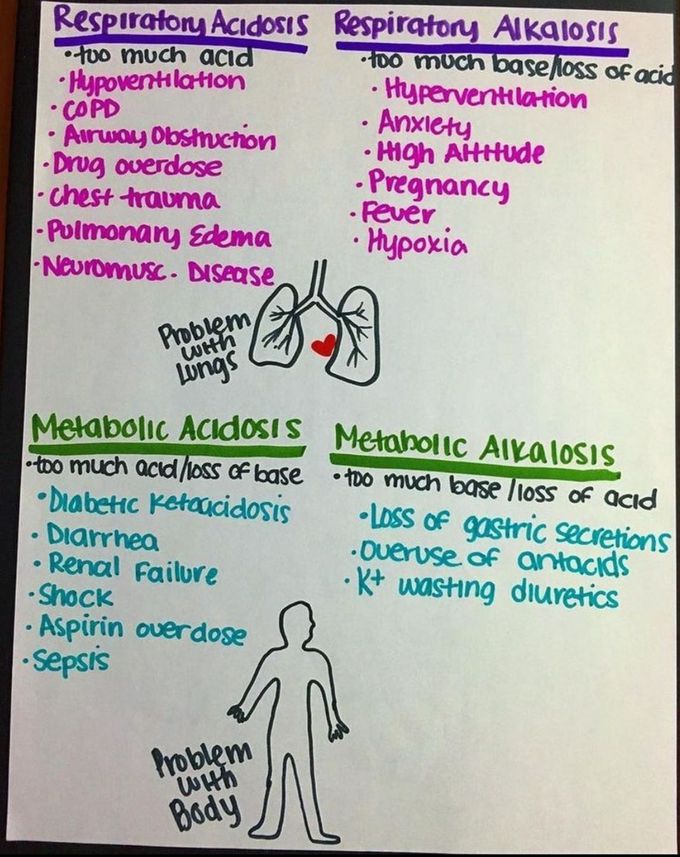 Respiratory Acidosis
• too much acid
• Hypoventilation
• COPD
• Airway Obstruction
• Drug overdose
• chest trauma
• Pulmonary Edema
• Neuromusc. Disease
Respiratory Alkalosis
• too much base/loss of acid
• Hyperventilation
• Anxiety
• High Altitude
• Pregnancy
• Fever
• Hypoxia
Problem
with
Lungs
Metabolic Acidosis
• too much acid/loss of base
• Diabetic Ketoacidosis
• Diarrhea
• Renal Failure
• Shock
• Aspirin overdose
• Sepsis
Metabolic Alkalosis
• too much base/loss of acid
• Loss of gastric secretions
• overuse of antacids
• K+ wasting diuretics
Problem
with
Body